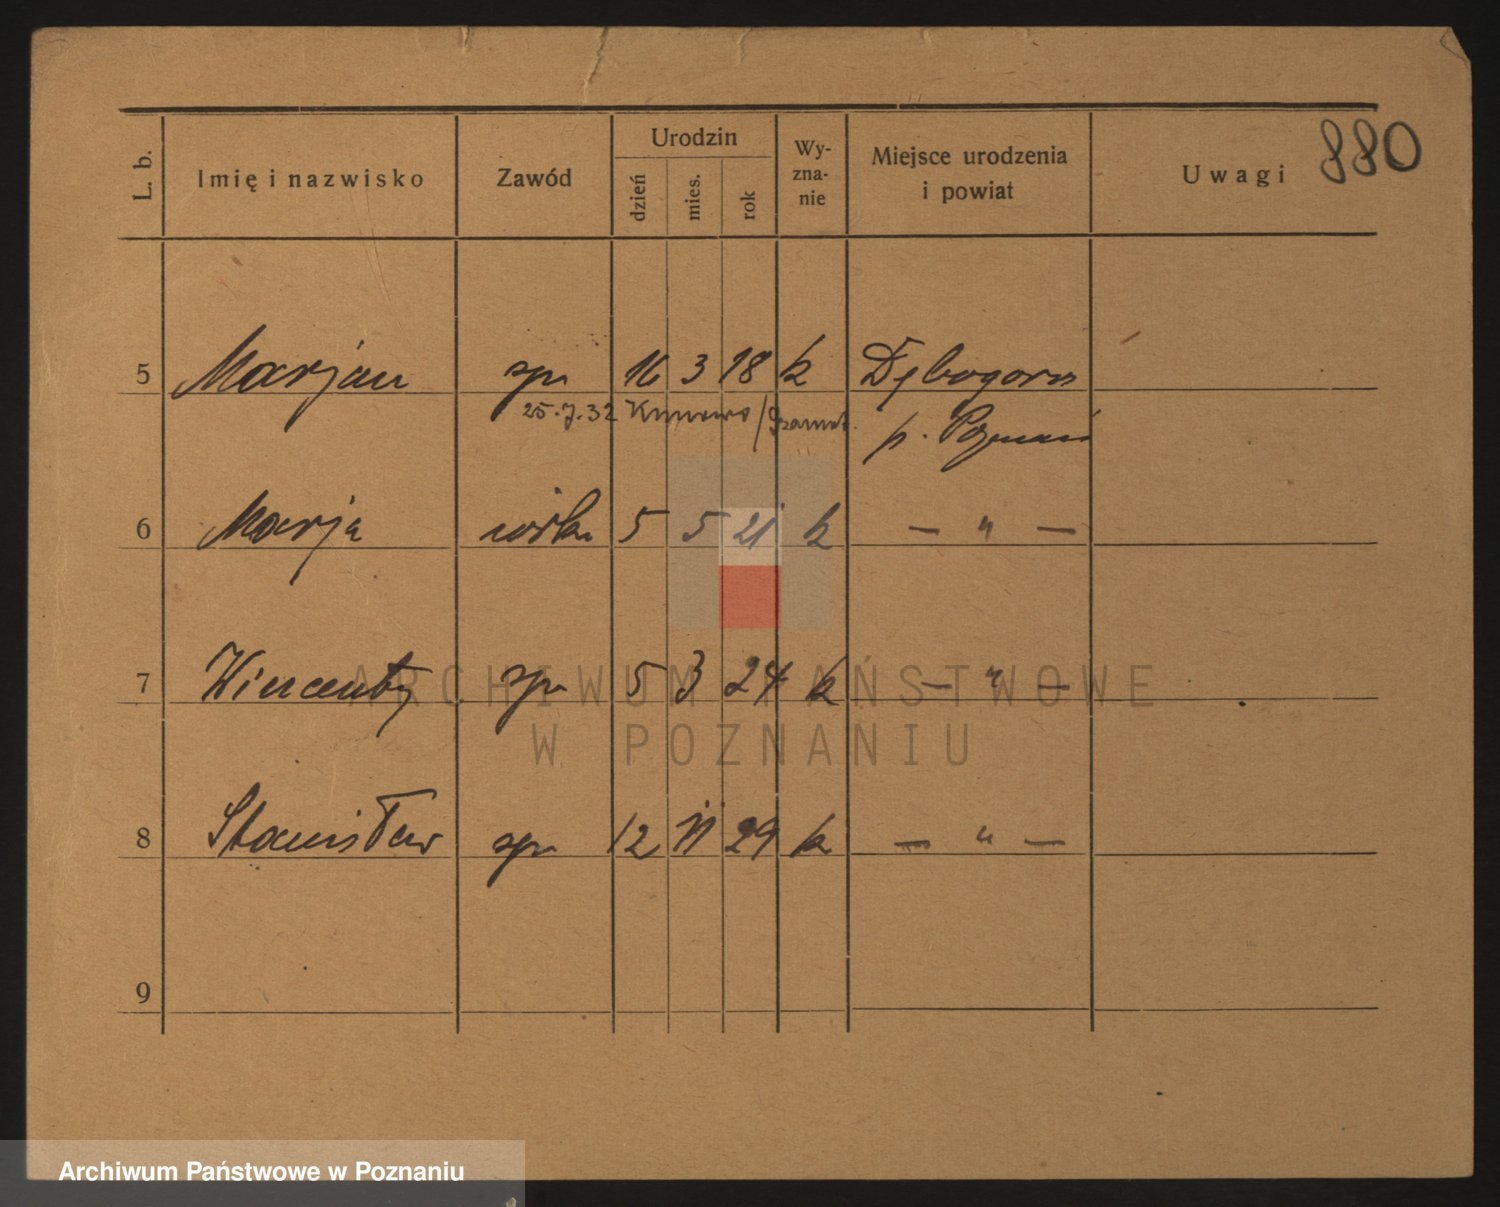 880
L. b. Imię i nazwisko Zawód Urodzin dzień mies. rok Wy-zna-nie Miejsce urodzenia i powiat Uwagi
5 Marjan syn 16 3 18 k Dębogora
25.7.32 Kunowo / Szamot. p. Poznań
6 Marja córka 5 5 21 k — " —
7 Wincenty syn 5 3 24 k — " —
8 Stanisław syn 12 11 29 k — " —
9
ARCHIWUM PAŃSTWOWE
W POZNANIU
Archiwum Państwowe w Poznaniu